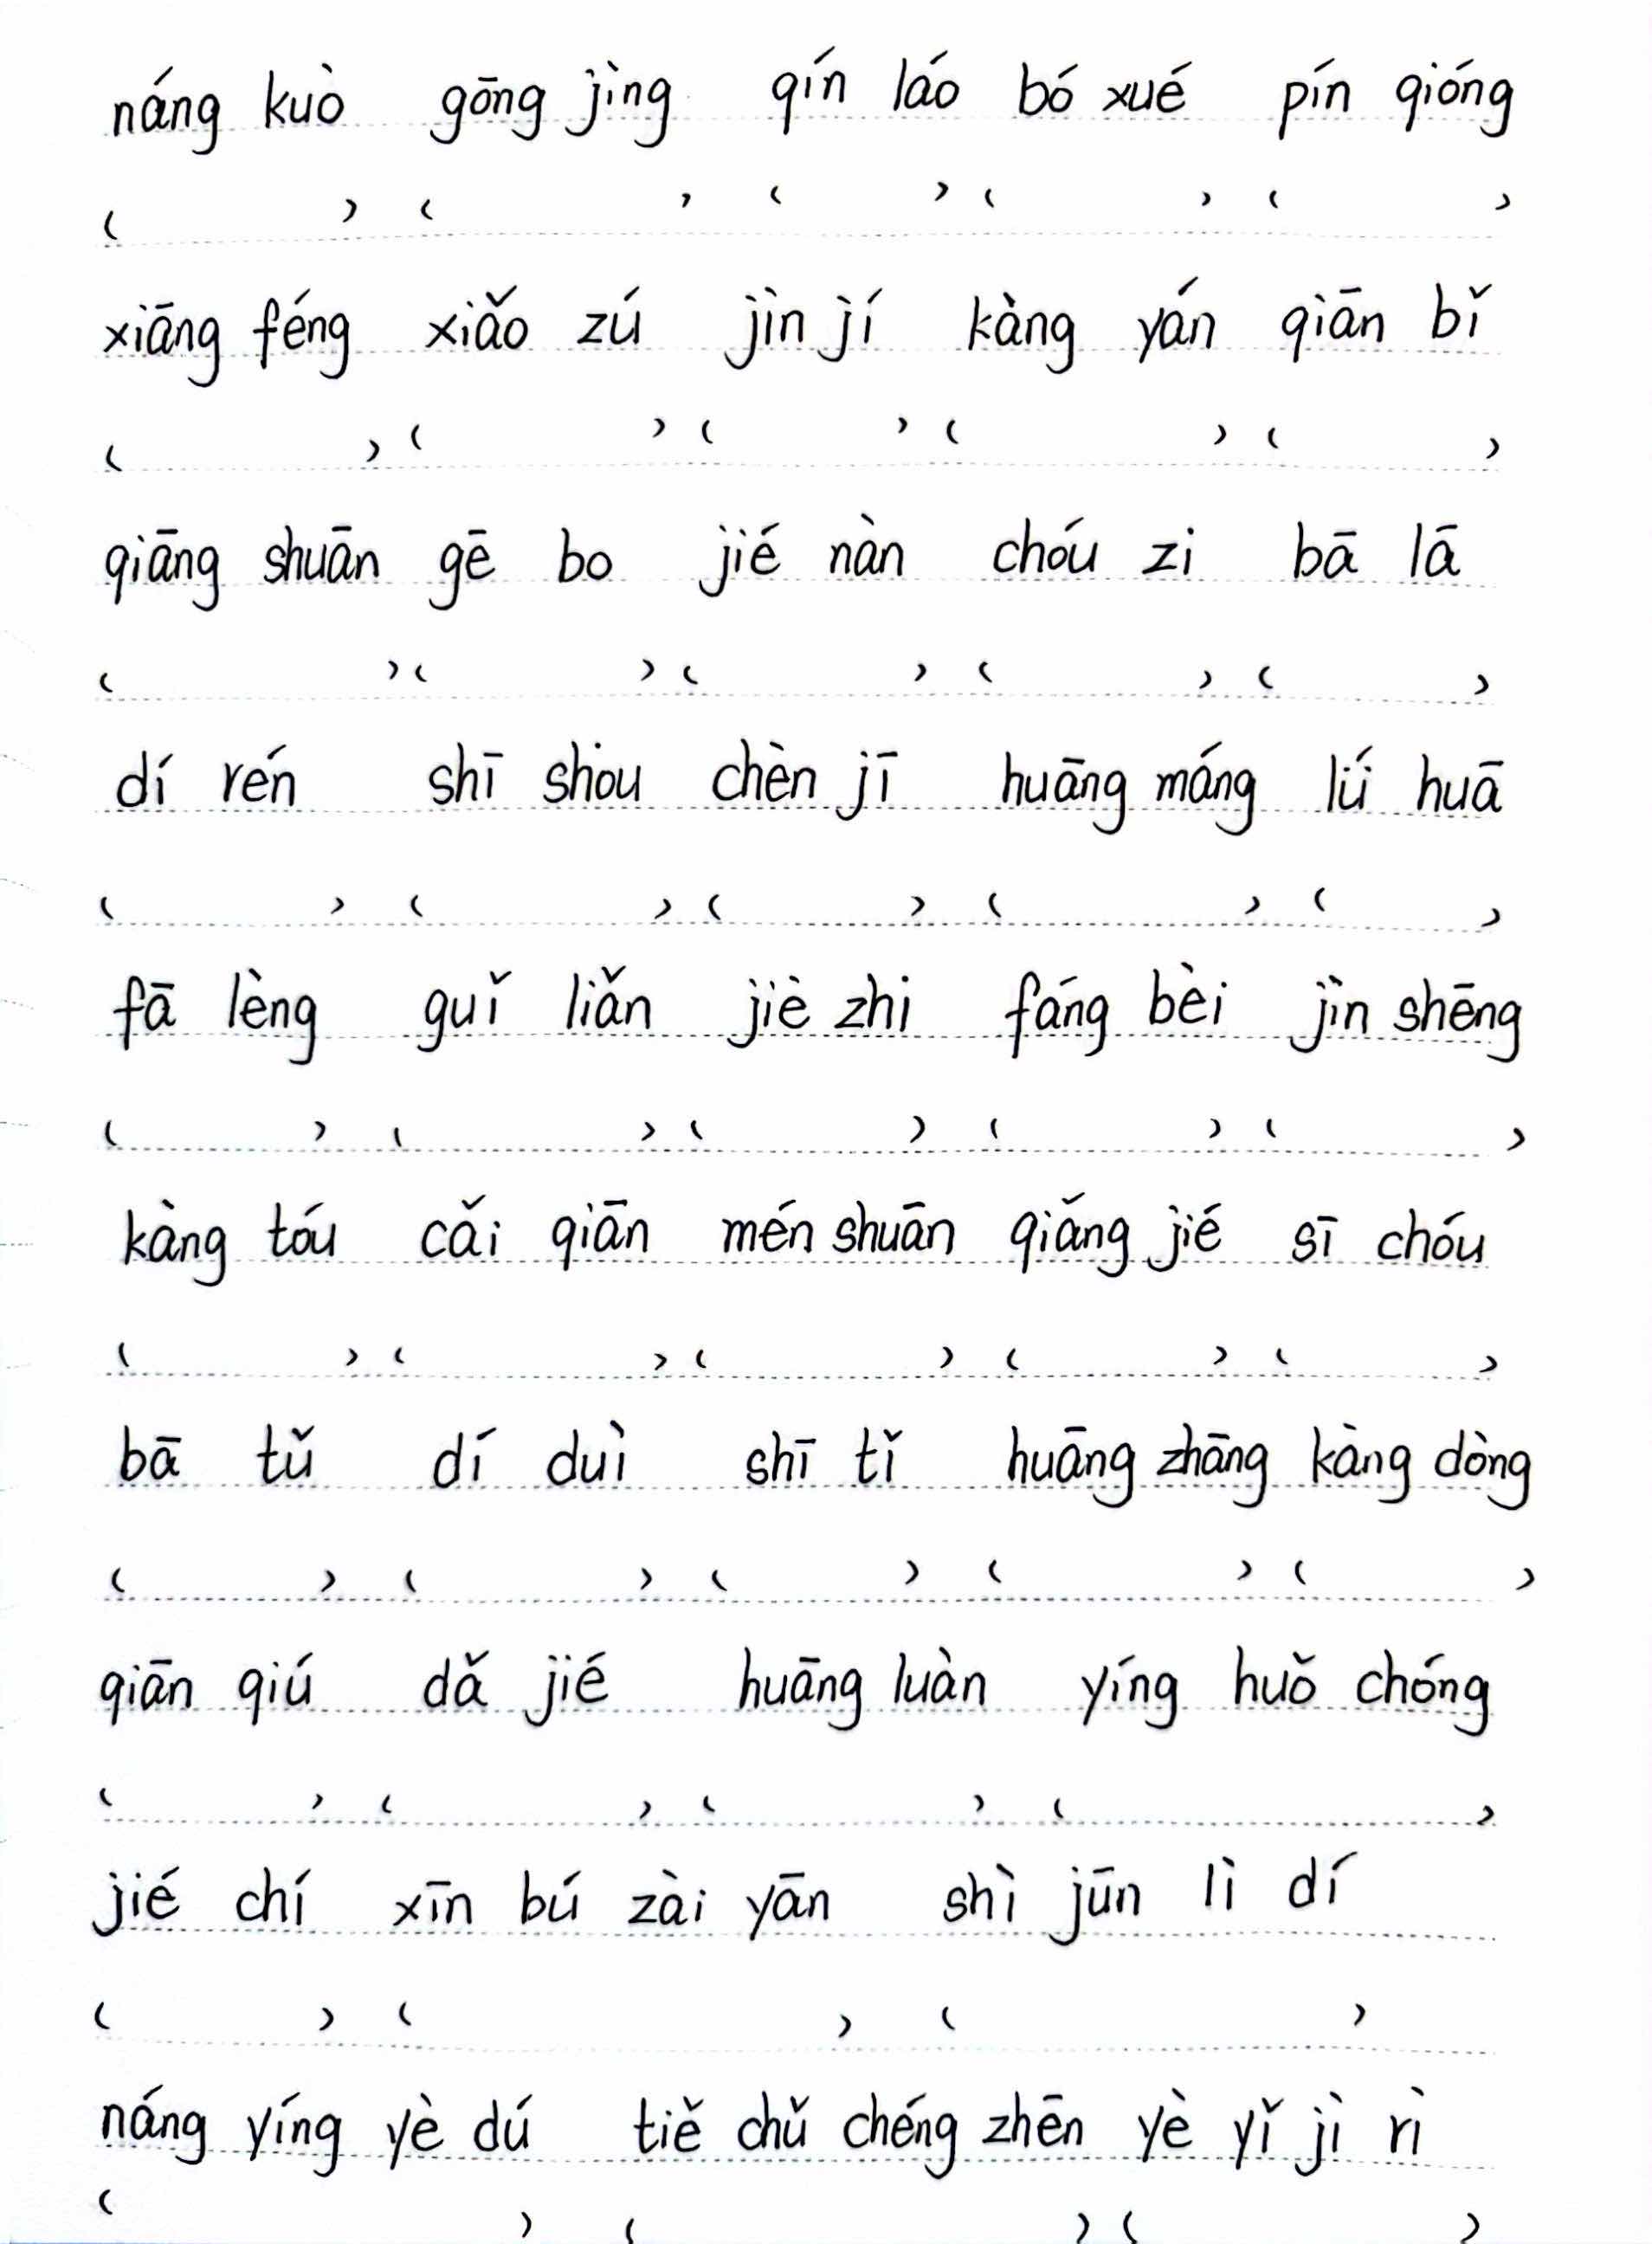 náng kuò gōng jìng qín láo bó xué pín qióng
( ) ( ) ( ) ( ) ( )
xiāng féng xiǎo zú jìn jí kàng yán qiān bǐ
( ) ( ) ( ) ( ) ( )
qiāng shuān gē bo jié nàn chóu zi bā lā
( ) ( ) ( ) ( ) ( )
dí rén shī shou chèn jī huāng máng lú huā
( ) ( ) ( ) ( ) ( )
fā lèng guǐ liǎn jiè zhi fáng bèi jìn shēng
( ) ( ) ( ) ( ) ( )
kàng tóu cǎi qiān mén shuān qiǎng jié sī chóu
( ) ( ) ( ) ( ) ( )
bā tǔ dí duì shī tǐ huāng zhāng kàng dòng
( ) ( ) ( ) ( ) ( )
qiān qiú dǎ jié huāng luàn yíng huǒ chóng
( ) ( ) ( ) ( )
jié chí xīn bú zài yān shì jūn lì dí
( ) ( ) ( )
náng yíng yè dú tiě chǔ chéng zhēn yè yǐ jì rì
( ) ( ) ( )